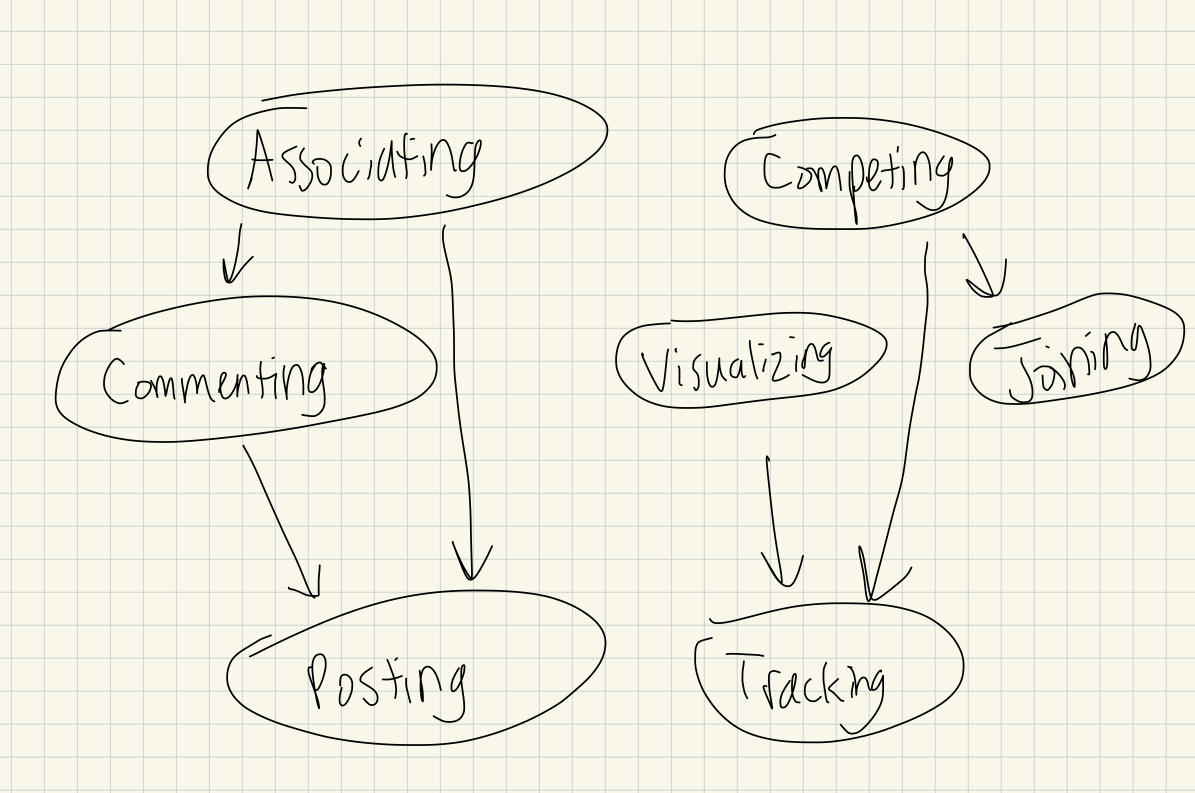 Associating
Competing
Commenting
Visualizing
Joining
Posting
Tracking